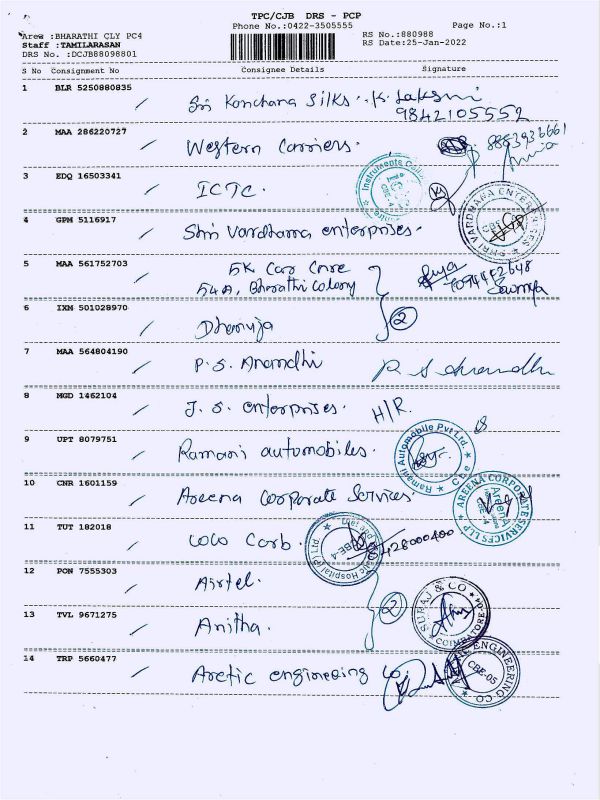 TPC/CJB DRS - PCP
Phone No.:0422-3505555 Page No.:1
Area :BHARATHI CLY PC4 RS No.:880988
Staff :TAMILARASAN RS Date:25-Jan-2022
DRS No. :DCJB88098801
S No Consignment No Consignee Details Signature
1 BLR 5250880835 Sri Kanchana Silks K. Lakshmi
9842105552
2 MAA 286220727 Western Carriers.
3 EDQ 16503341 ICTC.
4 GPM 5116917 Shri Vardhana enterprises.
SHRI VARDHMANA ENTERPRISES
5 MAA 561752703 5K Car Care
54A, Bharathi Colony
Sowmya
6 IXM 501028970 Dhanuja 2
7 MAA 564804190 P. S. Anandhi P S Anandhi
8 MGD 1462104 J. S. enterprises. H/R.
9 UPT 8079751 Ramani automobiles.
Ramani Automobile Pvt Ltd. Cbe
10 CNR 1601159 Areena Corporate Services.
AREENA CORPORATE SERVICES LLP
Areena
CBE-4
11 TUT 182018 COCO Carb.
Hospital (P) Ltd. CBE-4
12 PON 7555303 Airtel. 2
SURAJ & CO COIMBATORE-04
13 TVL 9671275 Anitha.
14 TRP 5660477 Arctic engineering Co.
ENGINEERING CO
CBE-05